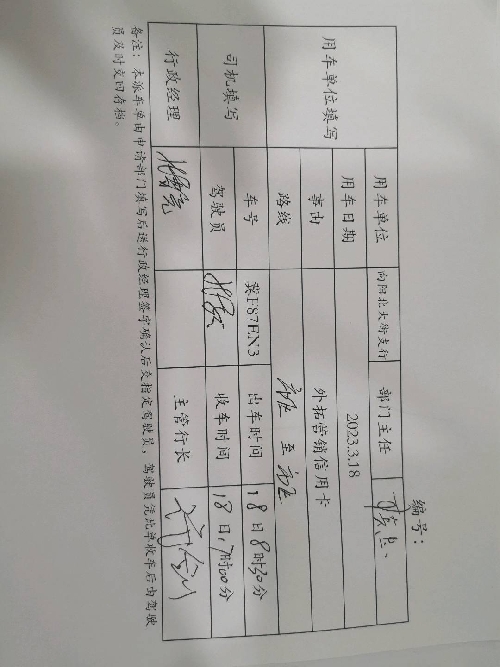 编号：
用车单位填写 用车单位 向阳北大街支行 部门主任
用车日期 2023.3.18
事由 外拓营销信用卡
路线 至
司机填写 车号 冀F87EN3 出车时间 18日8时30分
驾驶员 收车时间 18日17时00分
行政经理 主管行长
备注：本派车单由申请部门填写后送行政经理签字确认后交指定驾驶员，驾驶员凭此单收车后由驾驶
员及时交回存档。